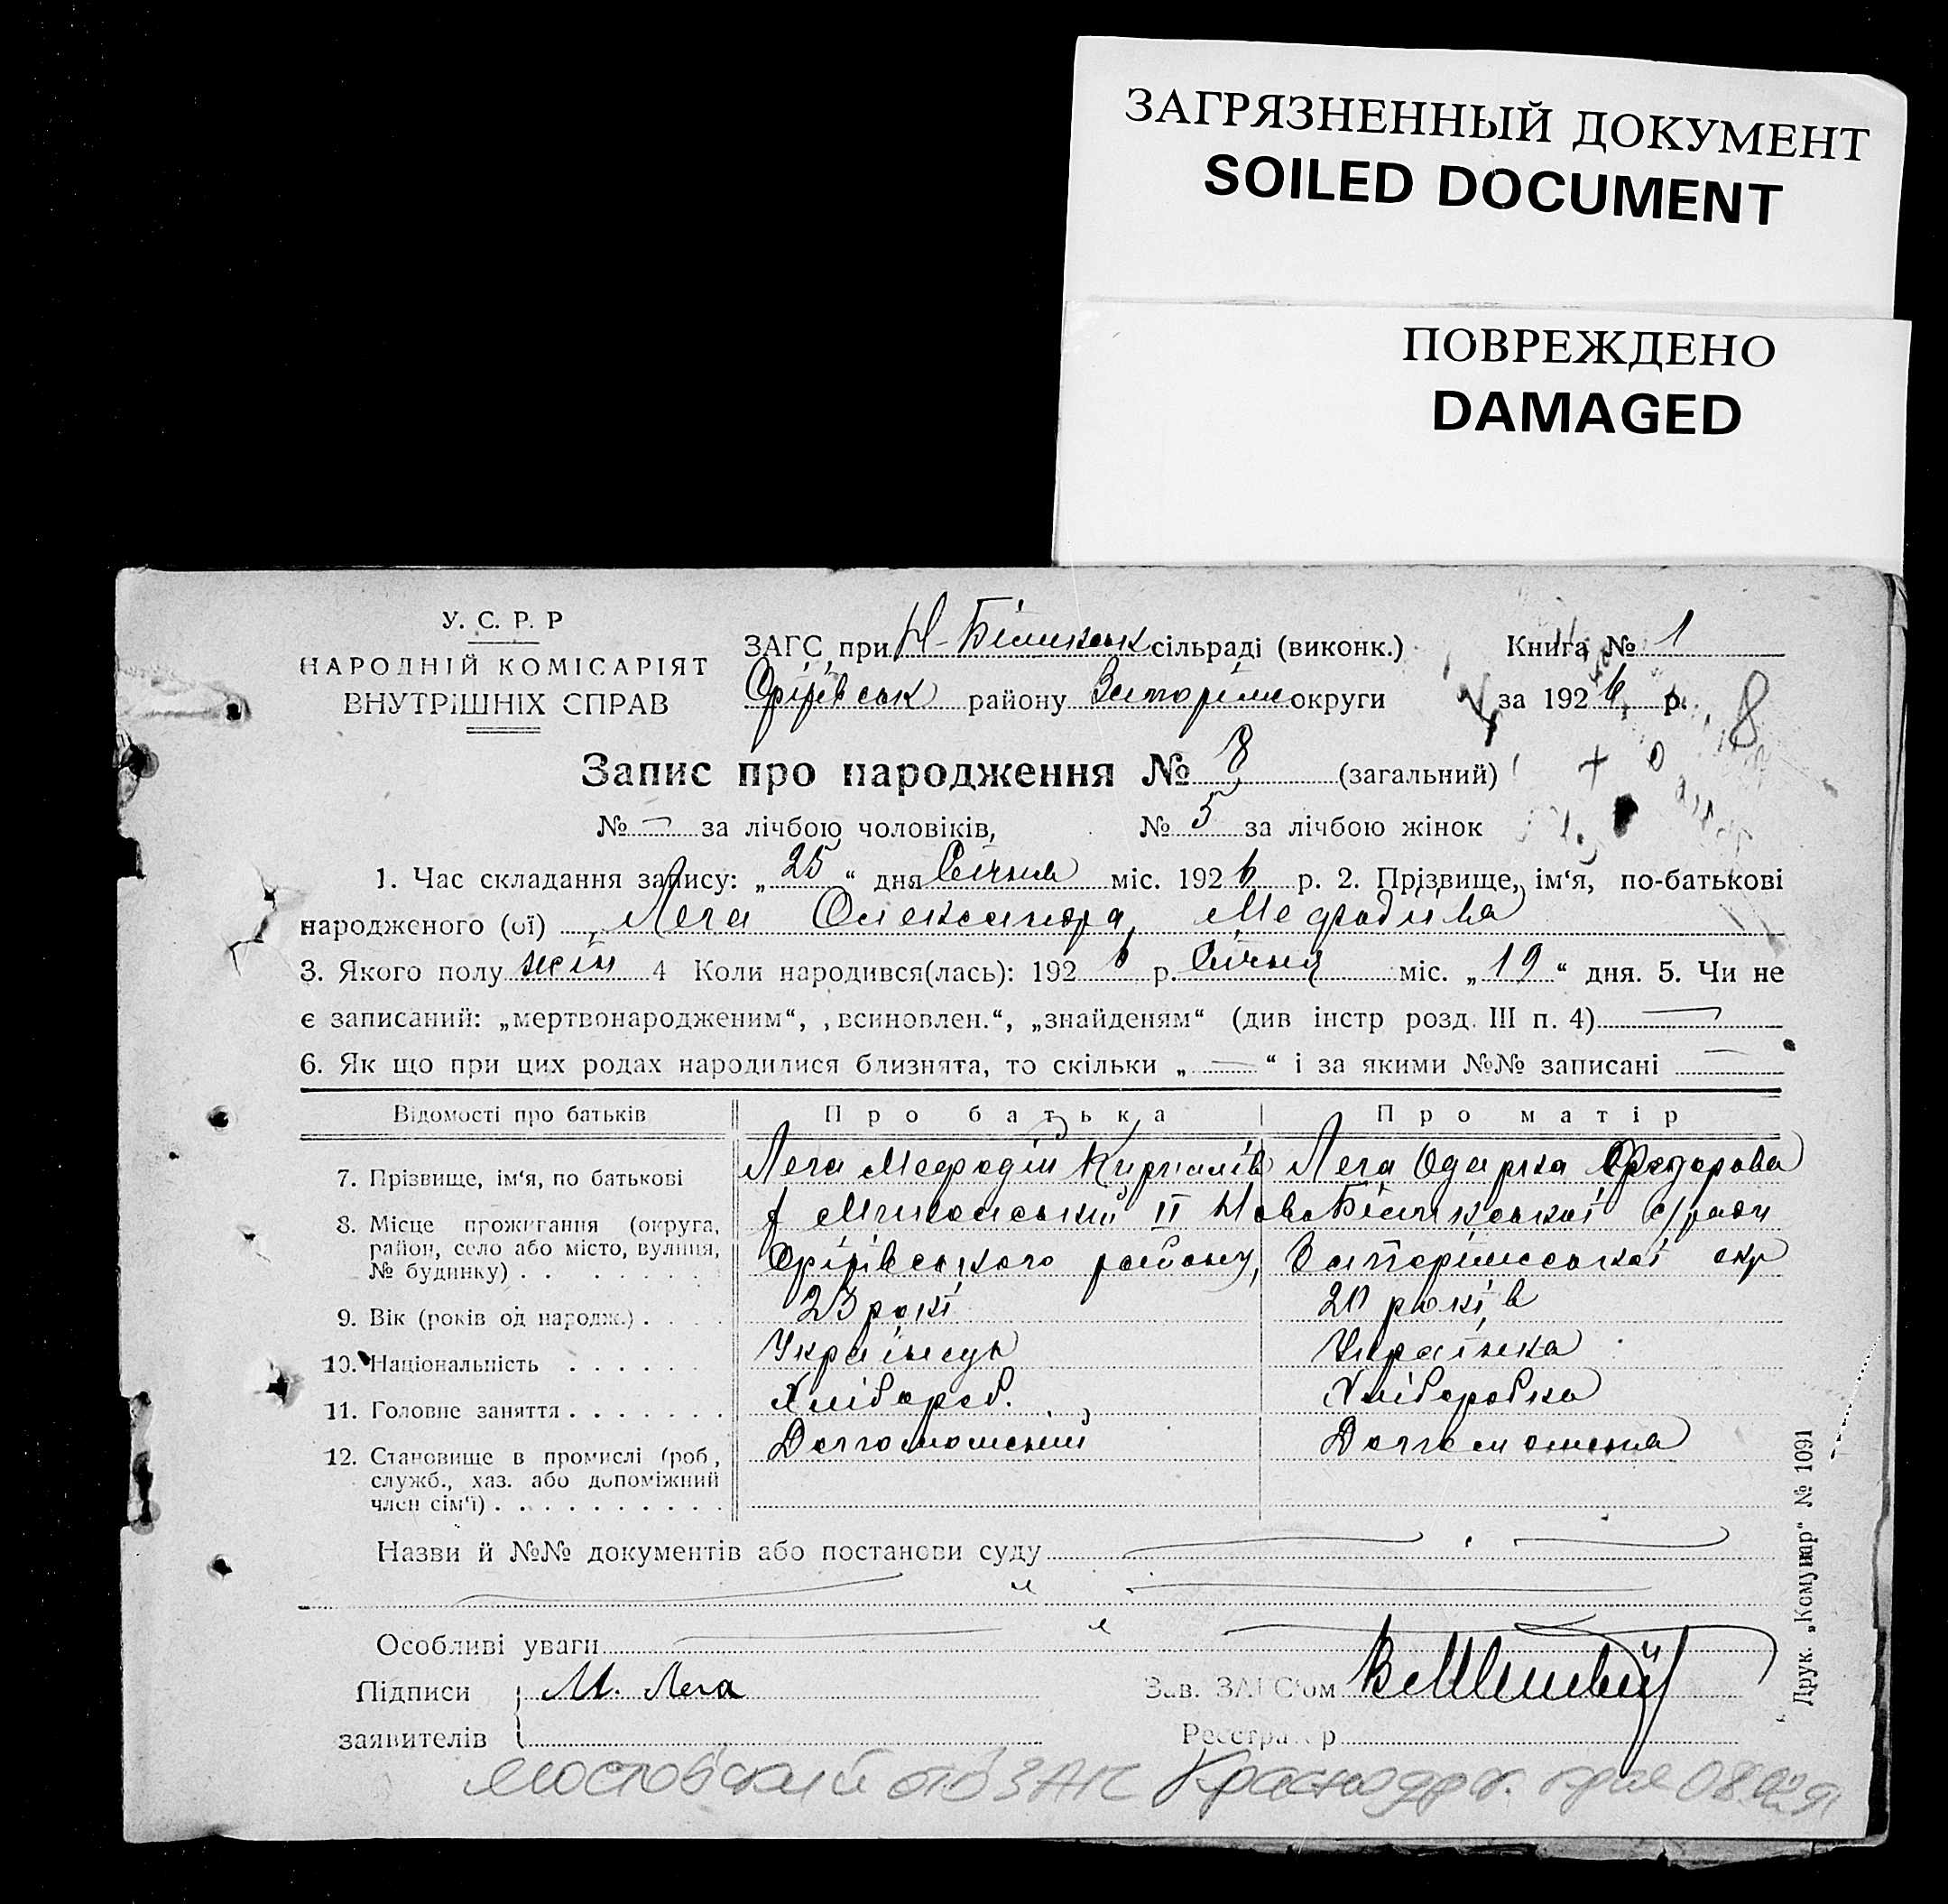 ЗАГРЯЗНЕННЫЙ ДОКУМЕНТ
SOILED DOCUMENT
ПОВРЕЖДЕНО
DAMAGED
У. С. Р. Р
НАРОДНІЙ КОМІСАРІЯТ
ВНУТРІШНІХ СПРАВ
ЗАГС при сільраді (виконк.) Книга № 1
Оріхівськ району Запоріж округи за 1926 р.
8
Запис про народження № 8 (загальний)
№ — за лічбою чоловіків, № 5 за лічбою жінок
1. Час складання запису: „25“ дня Січня міс. 1926 р. 2. Прізвище, ім‘я, по-батькові
народженого (ої) Лега Олександра, Мефодіїва
3. Якого полу жін 4 Коли народився(лась): 1926 р. Січня міс. „19“ дня. 5. Чи не
є записаний: „мертвонародженим“, „всиновлен.“, „знайденям“ (див інстр розд. III п. 4) —
6. Як що при цих родах народилися близнята, то скільки „ — “ і за якими №№ записані —
Відомості про батьків Про батька Про матір
7. Прізвище, ім‘я, по батькові Лега Мефодій Кирилів Лега Одарка Федорова
8. Місце проживання (округа, район, село або місто, вулиця, № будинку) II Ново с/ради
Оріхівського району, Запоріжської окр
9. Вік (років од народж.) 23 рокі 20 років
10. Національність Українець Українка
11. Головне заняття Хлібороб. Хліборобка
12. Становище в промислі (роб., служб., хаз. або допоміжний член сім‘ї)
Назви й №№ документів або постанови суду —
Особливі уваги —
Підписи М. Лега Зав. ЗАГС‘ом
заявителів Реєстратор
Друк. „Комунар“ № 1091
Мостовский отд ЗАГС Краснодар. края